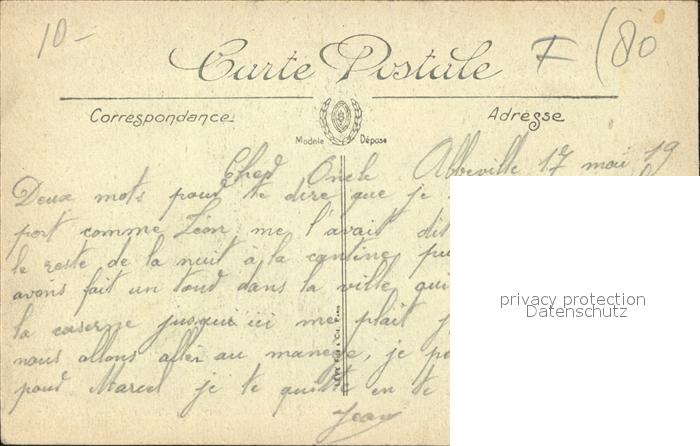 10-
Carte Postale F (80
Correspondance Adresse
Modèle Déposé
Cher Oncle Abbeville 17 mai 19
Deux mots pour te dire que je
port comme Léon me l'avait dit
le reste de la nuit à la cantine,
avons fait un tour dans la ville, qui
la caserne jusqu'ici me plait
nous allons aller au manège, je
pour Marcel je te quitte en te
Jean
privacy protection
Datenschutz